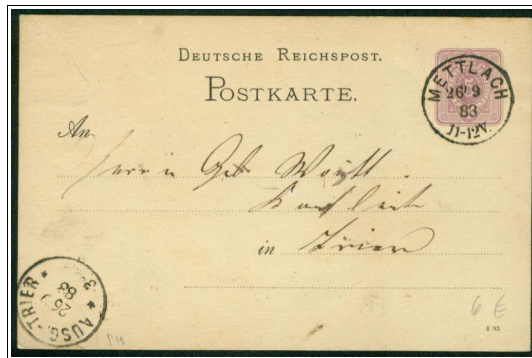 DEUTSCHE REICHSPOST.
POSTKARTE.
METTLACH
26 9
83
11-12V.
An
Herrn Geb
Kaufleute
in Trier
AUSG-TRIER
26 9
83
3
6 €
4 83